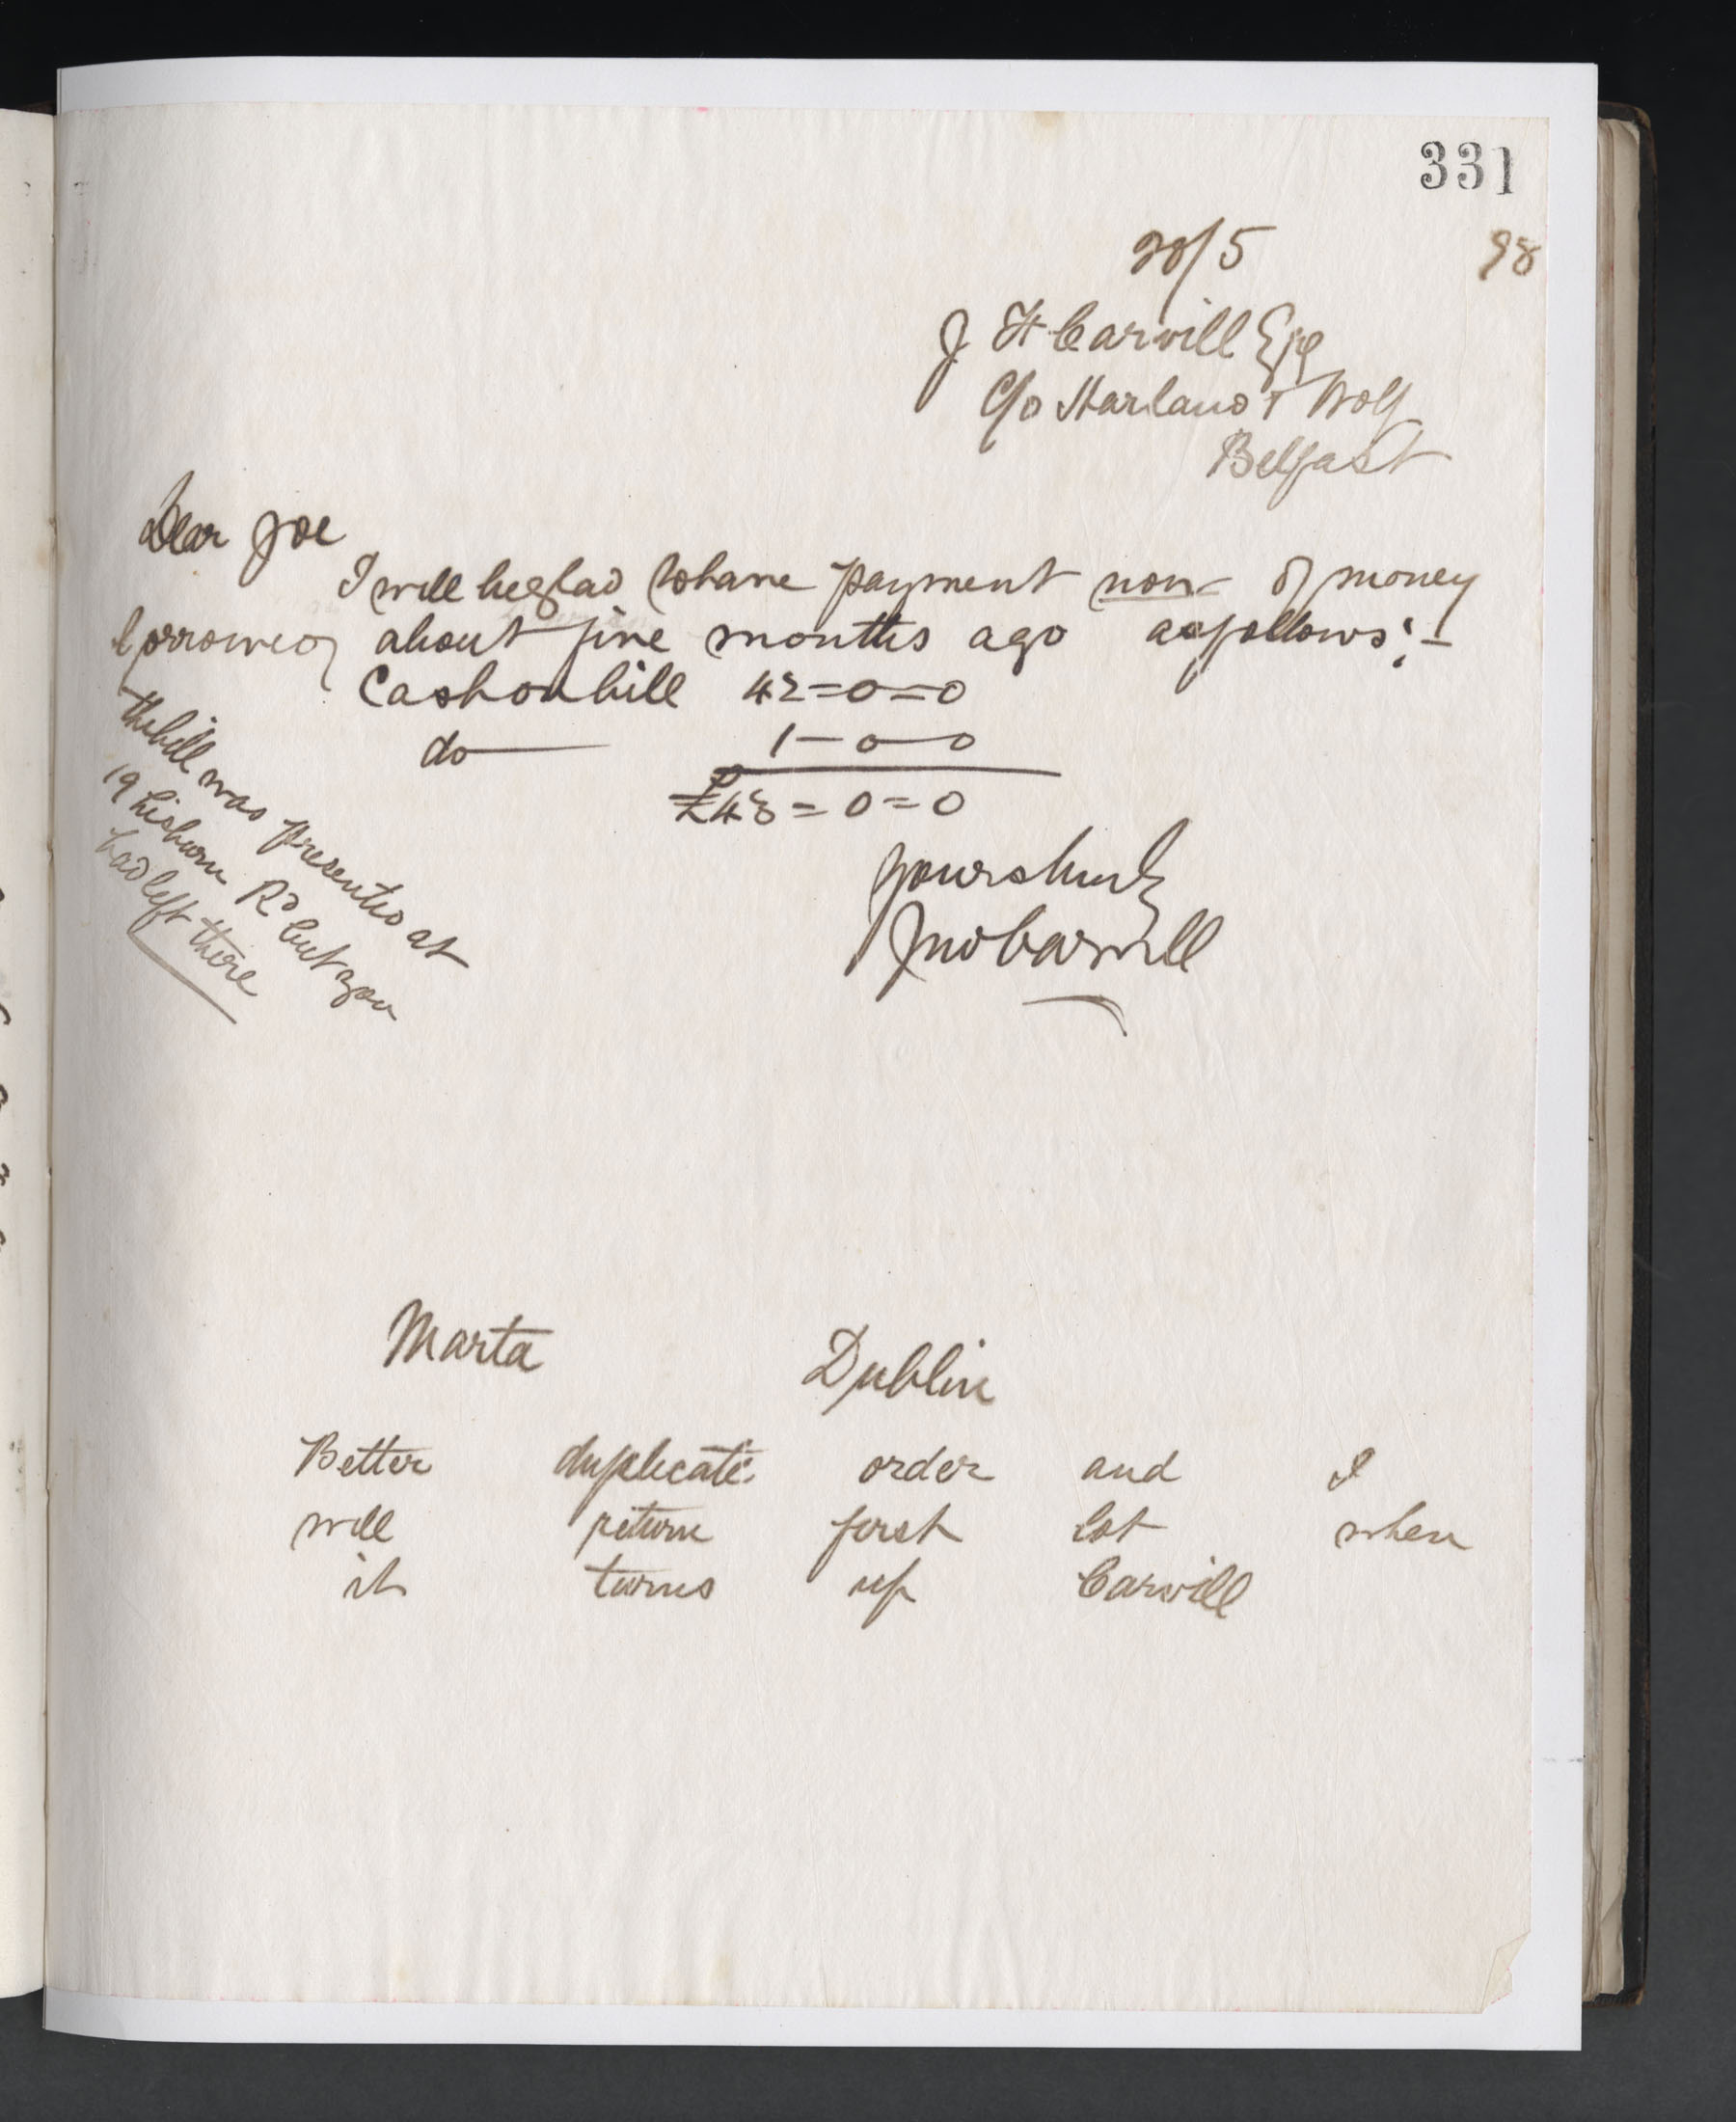 331
28/5 98
J H Carvill Esq
C/o Harland & Wolf
Belfast
Dear Joe
I will be glad to have payment now of money
borrowed about five months ago as follows:-
Cash on bill 42=0=0
do 1-0-0
£43=0=0
Yours truly
Jno Carvill
the bill was presented at
19 Lisburn Rd but you
had left there
Marta Dublin
Better duplicate order and I
will return first lot when
it turns up Carvill